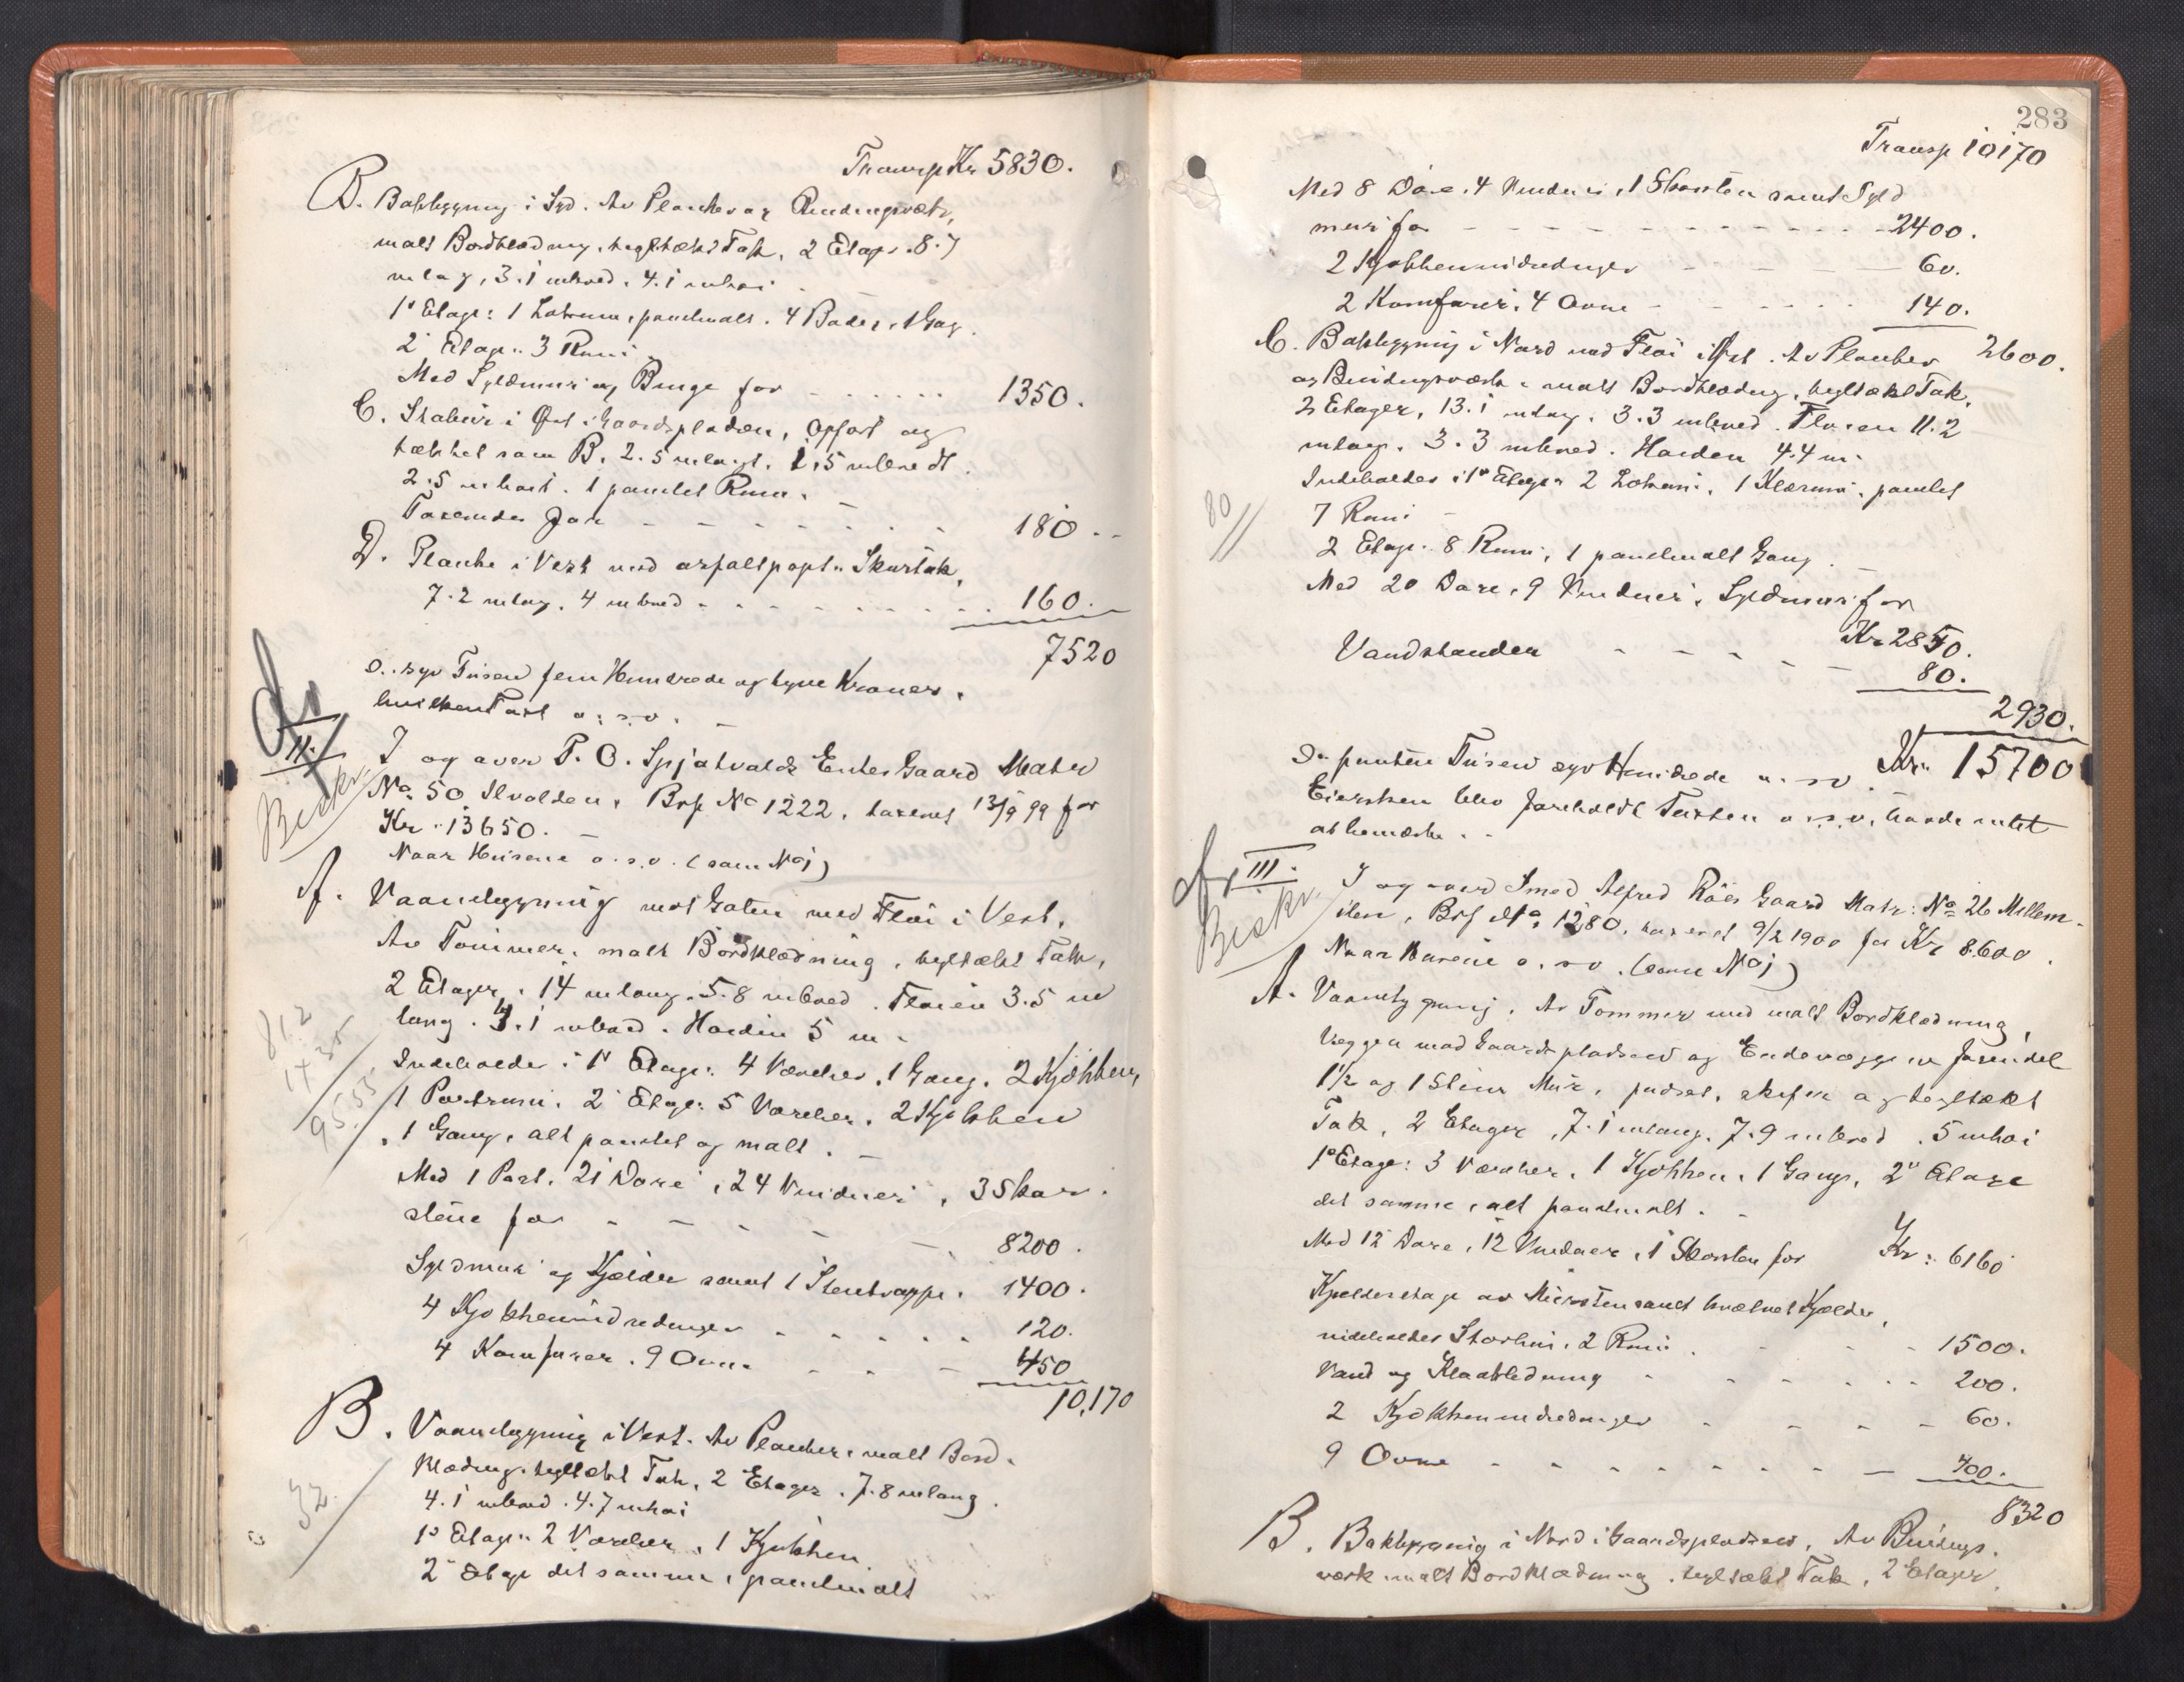 Transp Kr 5830.
B. Bakbygning i Syd. Av Planker og Bindingsværk,
malt Bordklædning, teglhækt Tak, 2 Etager. 8.7
m lang, 3.1 m bred. 4.1 m høi
1ste Etage: 1 Lokrum, panelmalt. 4 Boder, 1 Gang.
2 Etage: 3 Rum
Med Syldmur og Binge for - - - - - 1350.
C. Stabur i Øst i Gaardspladsen, Opført og
tækket som B. 2.5 m langt. 1.5 m bredt.
2.5 m høit. 1 panelet Rum.
Taxeredes for - - - - - - 180 --
D. Planke i Vest med asfaltpapt. Skurtak,
7.2 m lang. 4 m bred - - - - - - 160.
7520
o.. syv Tusen fem Hundrede og tyve Kroner.
hvilken Taxt o. s. v. -
II.
Beskr.
I og over P. O. Spjøtvolds Enkes Gaard Matr
No. 50 Ilvolden, Brf No 1222, taxeret 13/9 99 for
Kr. 13650. -
Naar Husene o. s. v. (som No 1)
A. Vaaningsbygning mot Gaten med Fløi i Vest.
Av Tømmer, malt Bordklædning, teglhækt Tak,
2 Etager, 14 m lang. 5.8 m bred. Fløien 3.5 m
lang. 4.1 m bred. Høiden 5 m.
81,2
14 35
95.55
Indeholder i 1ste Etage: 4 Værelser, 1 Gang. 2 Kjøkken,
1 Portrum. 2 Etage: 5 Værelser. 2 Kjøkken
, 1 Gang, alt panelet og malt. -
Med 1 Port. 21 Døre, 24 Vinduer, 3 Skor-
stene for - - - - - 8200.
Syldmur og Kjælder samt 1 Stentrappe. 1400.
4 Kjøkkenindredninger - - - - - 120.
4 Komfurer. 9 Ovne - - - 450
10,170
B. Vaaningsbygning i Vest. Av Planker, malt Bord-
klædning, teglhækt Tak, 2 Etager. 7.8 m lang.
32.
4.1 m bred. 4.7 m høi
1ste Etage: 2 Værelser, 1 Kjøkken.
2 Etage det samme, panelmalt
283
Transp 10170
Med 8 Døre, 4 Vinduer, 1 Skorsten samt Syld
mur for - - - - - - - 2400.
2 Kjøkkenindredninger - - - 60.
2 Komfurer, 4 Ovne - - - - 140.
2600.
C. Bakbygning i Nord med Fløi i Øst. Av Planker
og Bindingsværk, malt Bordklædng, teglhækt Tak,
2 Etager, 13.1 m lang. 3.3 m bred. Fløien 11.2
m lang. 3.3 m bred. Høiden 4.4 m.
80
Indeholder i 1ste Etage: 2 Lokrum, 1 Klærum, panelet
7 Rum -
2 Etage: 8 Rum, 1 panelmalt Gang. -
Med 20 Døre, 9 Vinduer, Syldmur for
Kr 2850.
Vandstander - - - - - 80.
2930.
Kr. 15700
Er femten Tusen syv Hundrede o. s. v.
Eiersken blev foreholdt Taxten o. s. v, havde intet
at bemærke. -
III.
Beskr.
I og over Smed Alfred Röes Gaard Matr: No 26 Mellem-
ilen, Brf No. 1280, taxeret 9/2 1900 for Kr 8.600.
Naar Husene o. s. v. (som No 1)
A. Vaaningsbygning, Av Tømmer med malt Bordklædning,
Væggen mod Gaardspladsen og Endevæggene for en del
1 1/2 og 1 Stens Mur, pudset, skifer og teglhækt
Tak, 2 Etager, 7.1 m lang. 7.9 m bred. 5 m høi
1ste Etage: 3 Værelser, 1 Kjøkken, 1 Gang, 2den Etage
det samme, alt panelmalt. -
Med 12 Døre, 12 Vinduer, 1 Skorsten for Kr: 6160
Kjelderetage av Mursten samt hvælvet Kjelder,
indeholder Storhus, 2 Rum - - - 1500.
Vand og Kloakledning - - - - - 200.
2 Kjøkkenindredninger - - - - 60.
9 Ovne - - - - - - - - 400.
8320
B. Bakbygning i Nord i Gaardspladsen, Av Bindings-
værk malt Bordklædning, teglhækt Tak, 2 Etager,